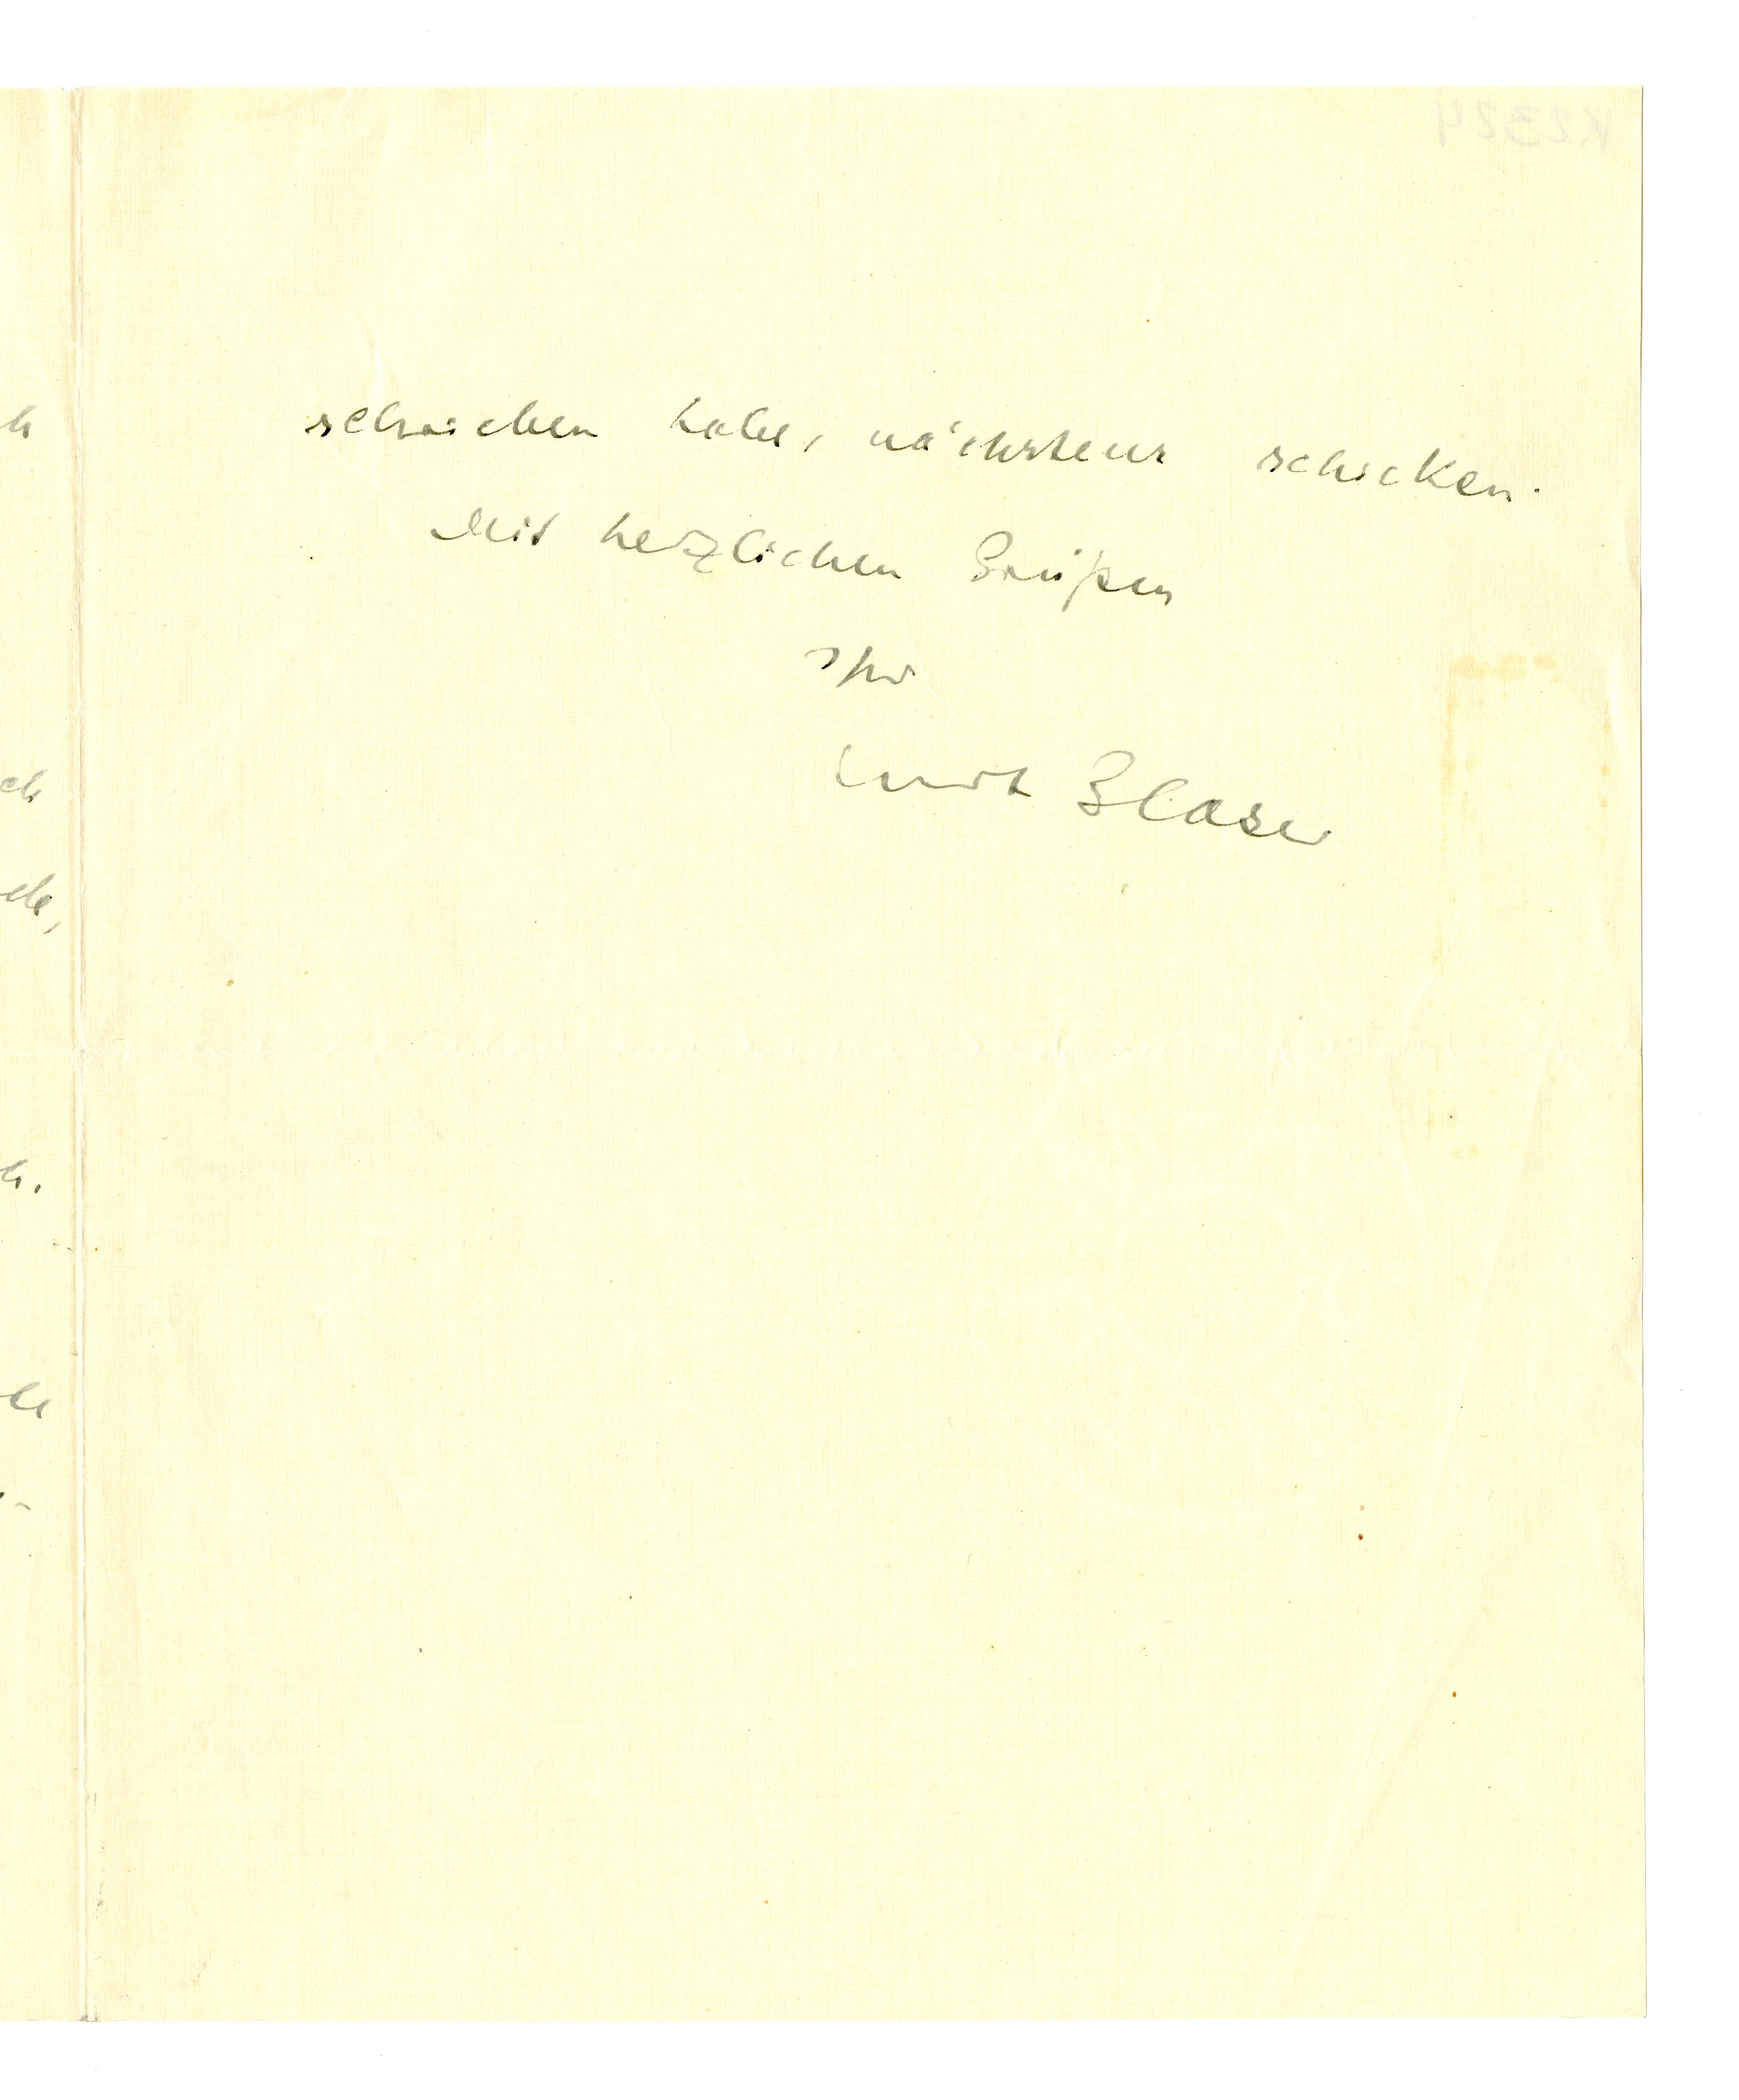 schrieben habe, nächstens schicken.
Mit herzlichen Grüßen
Ihr
Curt Glaser